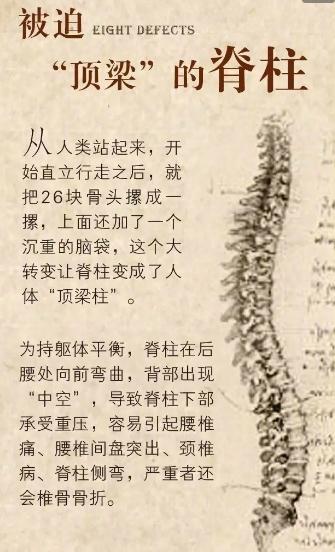 被迫 EIGHT DEFECTS
“顶梁”的脊柱
从人类站起来，开
始直立行走之后，就
把26块骨头摞成一
摞，上面还加了一个
沉重的脑袋，这个大
转变让脊柱变成了人
体“顶梁柱”。
为持躯体平衡，脊柱在后
腰处向前弯曲，背部出现
“中空”，导致脊柱下部
承受重压，容易引起腰椎
痛、腰椎间盘突出、颈椎
病、脊柱侧弯，严重者还
会椎骨骨折。